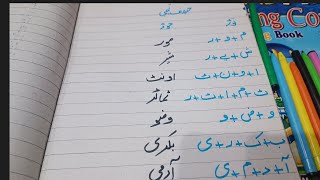 جوڑ توڑ
م + و + ر مور
ش + ی + ر شیر
ا + و + ن + ٹ اونٹ
ٹ + م + ا + ٹ + ر ٹماٹر
و + ض + و وضو
ب + ک + ر + ی بکری
آ + د + م + ی آدمی
ng Co
g Book